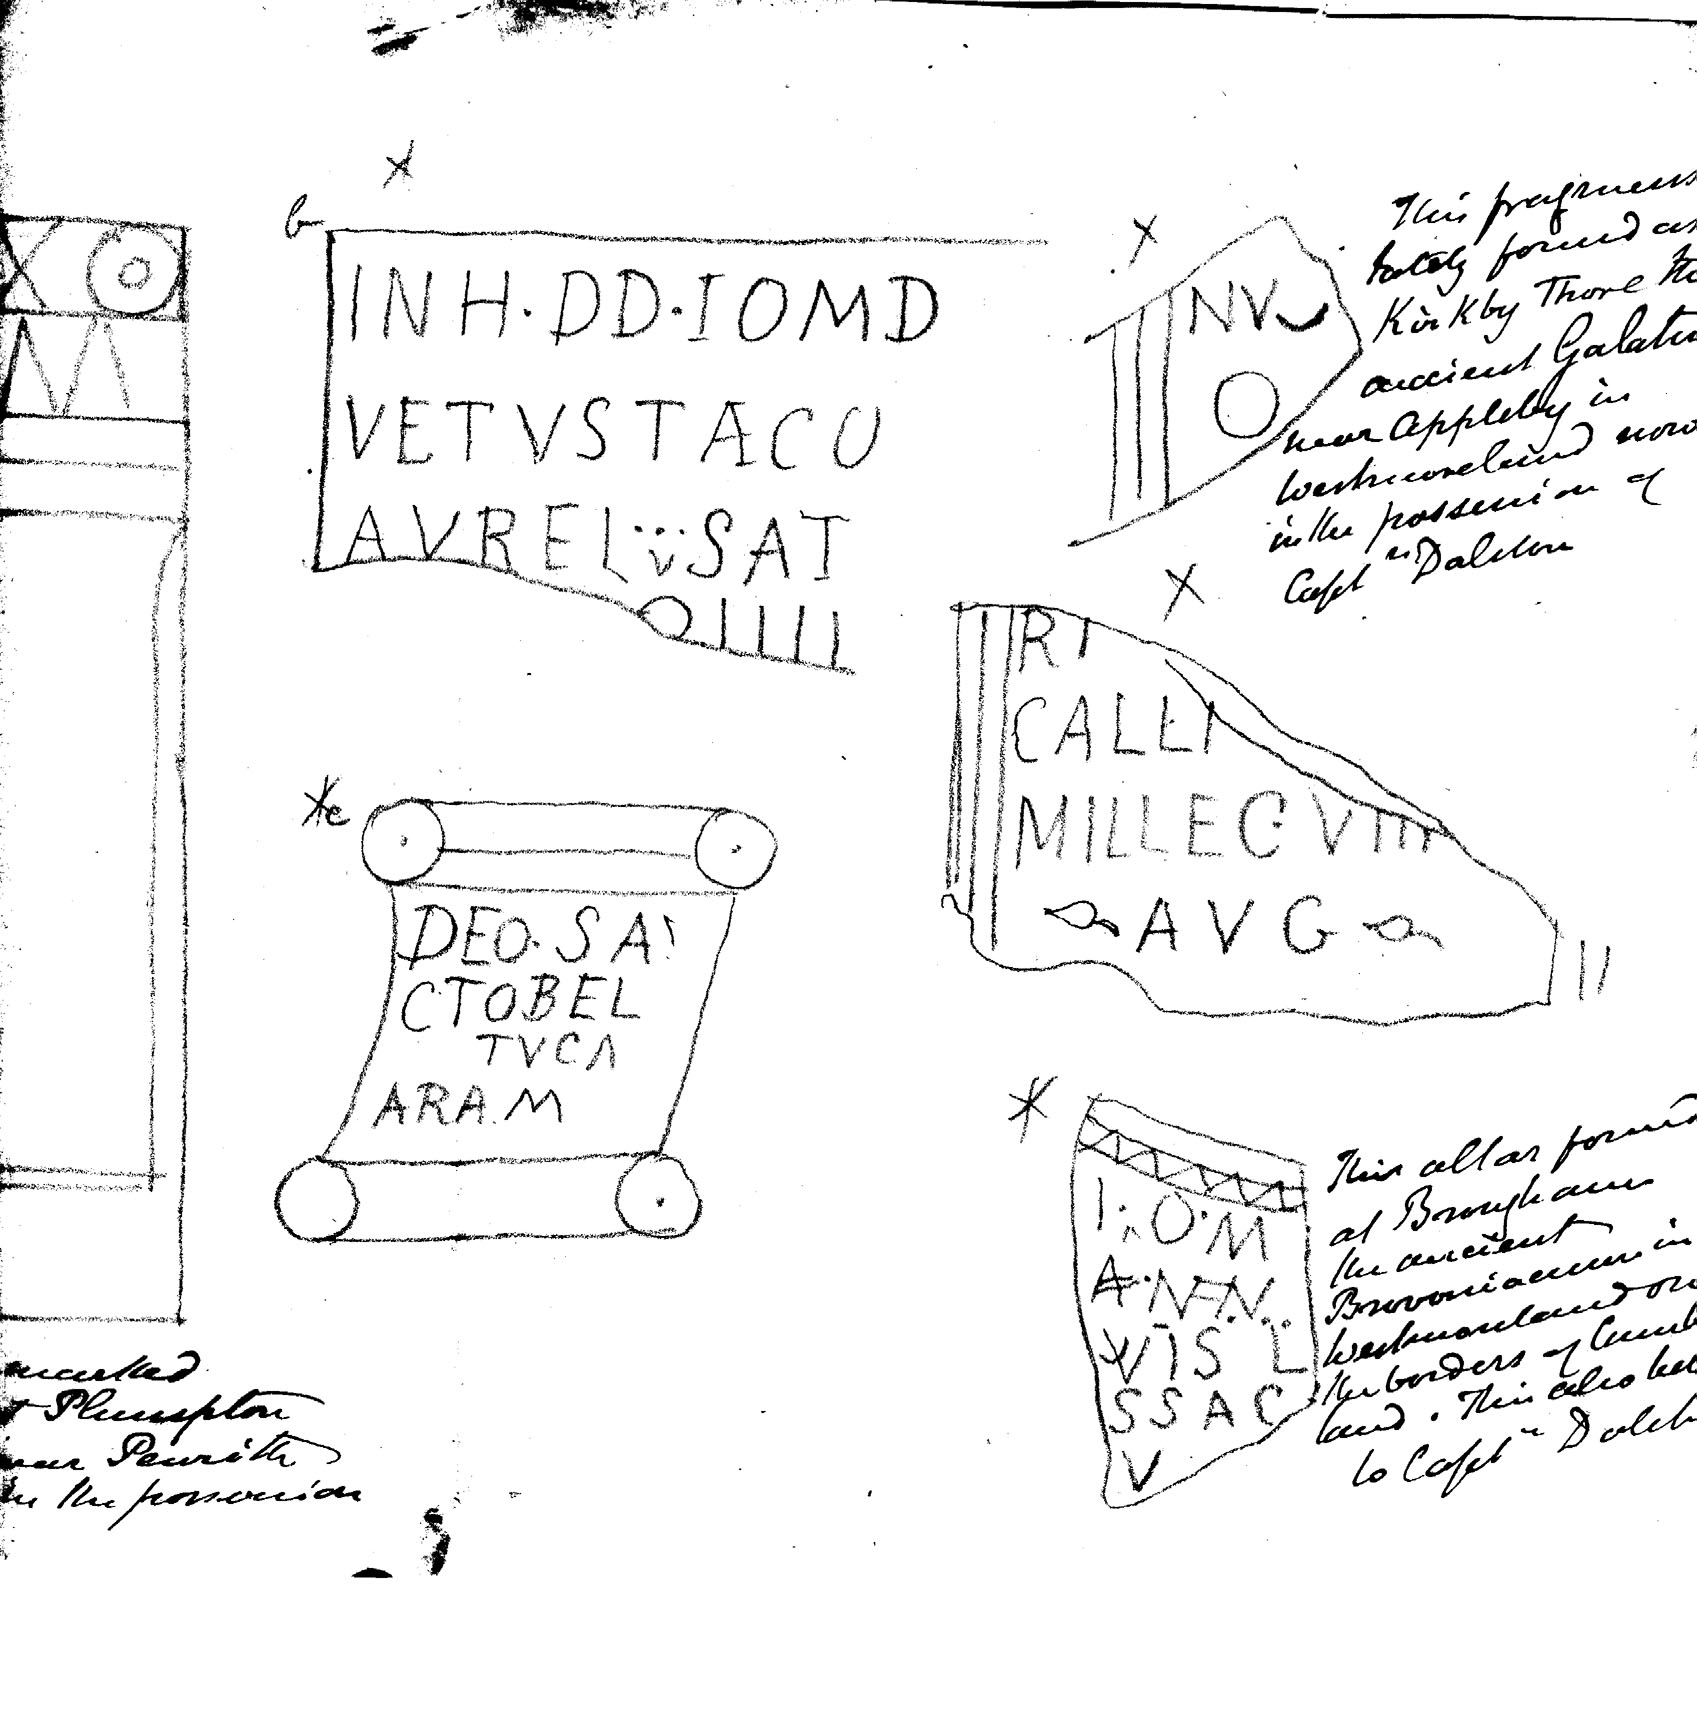 b
INH·DD·IOMD
VETVSTACO
AVREL SAT
OIIII
NV
O
This fragment
lately found at
Kirkby Thore the
ancient
near Appleby in
Westmoreland now
in the possession of
Capt.ⁿ Dalston
RI
CALLI
MILLEC VIII
AVG
II
c
DEO·SA
CTOBEL
TVCA
ARA.M
This altar found
at Brougham
the ancient
Brovoniacum in
Westmoreland on
the borders of Cumb
land. This also bel
to Capt.ⁿ Dalst
I·O·M
A·NAN
VIS L
SSAC
V
marked
Plumpton
near Penrith
in the possession